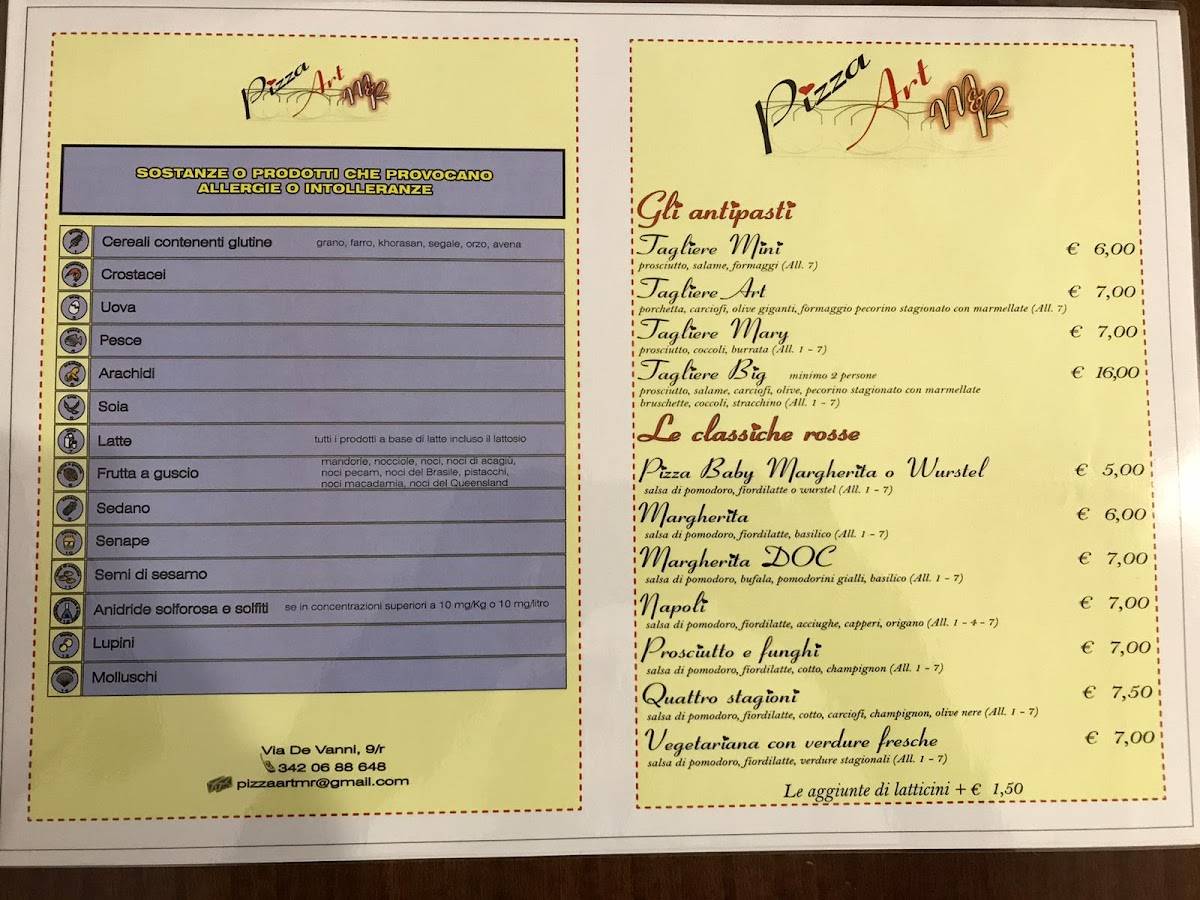 Pizza Art M&R
SOSTANZE O PRODOTTI CHE PROVOCANO
ALLERGIE O INTOLLERANZE
Cereali contenenti glutine grano, farro, khorasan, segale, orzo, avena
Crostacei
Uova
Pesce
Arachidi
Soia
Latte tutti i prodotti a base di latte incluso il lattosio
Frutta a guscio mandorle, nocciole, noci, noci di acagiù,
noci pecam, noci del Brasile, pistacchi,
noci macadamia, noci del Queensland
Sedano
Senape
Semi di sesamo
Anidride solforosa e solfiti se in concentrazioni superiori a 10 mg/Kg o 10 mg/litro
Lupini
Molluschi
Via De Vanni, 9/r
342 06 88 648
pizzaartmr@gmail.com
Pizza Art M&R
Gli antipasti
Tagliere Mini € 6,00
prosciutto, salame, formaggi (All. 7)
Tagliere Art € 7,00
porchetta, carciofi, olive giganti, formaggio pecorino stagionato con marmellate (All. 7)
Tagliere Mary € 7,00
prosciutto, coccoli, burrata (All. 1 - 7)
Tagliere Big minimo 2 persone € 16,00
prosciutto, salame, carciofi, olive, pecorino stagionato con marmellate
bruschette, coccoli, stracchino (All. 1 - 7)
Le classiche rosse
Pizza Baby Margherita o Wurstel € 5,00
salsa di pomodoro, fiordilatte o wurstel (All. 1 - 7)
Margherita € 6,00
salsa di pomodoro, fiordilatte, basilico (All. 1 - 7)
Margherita DOC € 7,00
salsa di pomodoro, bufala, pomodorini gialli, basilico (All. 1 - 7)
Napoli € 7,00
salsa di pomodoro, fiordilatte, acciughe, capperi, origano (All. 1 - 4 - 7)
Prosciutto e funghi € 7,00
salsa di pomodoro, fiordilatte, cotto, champignon (All. 1 - 7)
Quattro stagioni € 7,50
salsa di pomodoro, fiordilatte, cotto, carciofi, champignon, olive nere (All. 1 - 7)
Vegetariana con verdure fresche € 7,00
salsa di pomodoro, fiordilatte, verdure stagionali (All. 1 - 7)
Le aggiunte di latticini + € 1,50